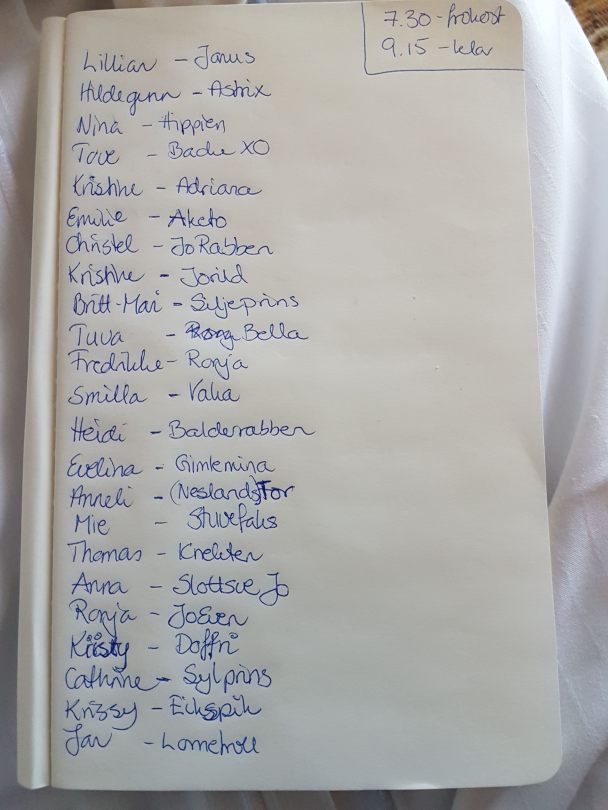 7.30 - frokost
9.15 - klar
Lillian - Janus
Hildegunn - Astrix
Nina - Hippien
Tove - Bache XO
Kristine - Adriana
Emilie - Aketo
Christel - JoRabben
Kristine - Jorild
Britt-Mari - Siljeprins
Tuva - Bella
Fredrikke - Ronja
Smilla - Vaka
Heidi - Balderrabben
Evelina - Gimlemina
Anneli - (Neslands) Tor
Mie - Stuvefaks
Thomas - Knekten
Anna - Slottsve Jo
Ronja - JoEven
Kiisty - Doffri
Cathrine - Sylprins
Krissy - Eikspik
Jan - Lometroll